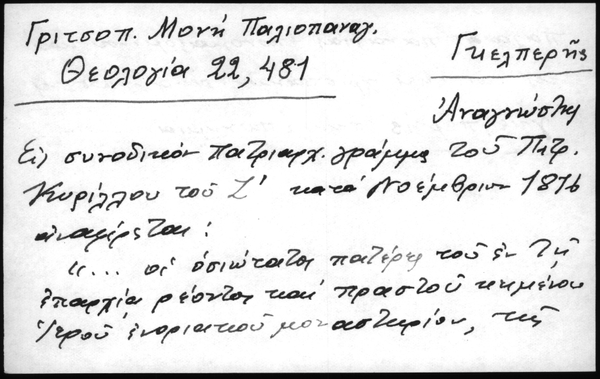 Γριτσοπ. Μονή Παλιοπαναγ.
Θεολογία 22, 481
Γκελπερῆς
Ἀναγνώστης
Εἰς συνοδικὸν πατριαρχ. γράμμα τοῦ Πατρ.
Κυρίλλου τοῦ Ζ' κατά Νοέμβριον 1816
ἀναφέρεται:
"... οἱ ὁσιώτατοι πατέρες τοῦ ἐν τῇ
ἐπαρχίᾳ ρέοντος καί πραστοῦ κειμένου
Ἱεροῦ ἐνοριακοῦ μοναστηρίου, τῆς